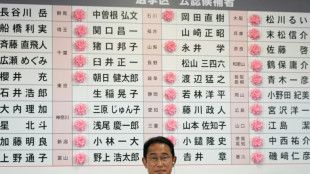 選挙区 公認候補者
長谷川 岳 中曽根 弘文 岡田 直樹 松川 るい
船橋 利実 関口 昌一 山崎 正昭 末松 信介
斉藤 直飛人 猪口 邦子 永井 学 佐藤 啓
広瀬 めぐみ 臼井 正一 松山 三四六 鶴保 庸介
桜井 充 朝日 健太郎 渡辺 猛之 青木 一彦
石井 浩太郎 生稲 晃子 若林 洋平 小野田 紀美
大内 理加 三原 じゅん子 藤川 政人 宮沢 洋一
星 北斗 浅尾 慶一郎 山本 佐知子 江島 潔
加藤 明良 小林 一大 中西 祐介
上野 通子 野上 浩太郎 吉井 章 磯崎 仁彦